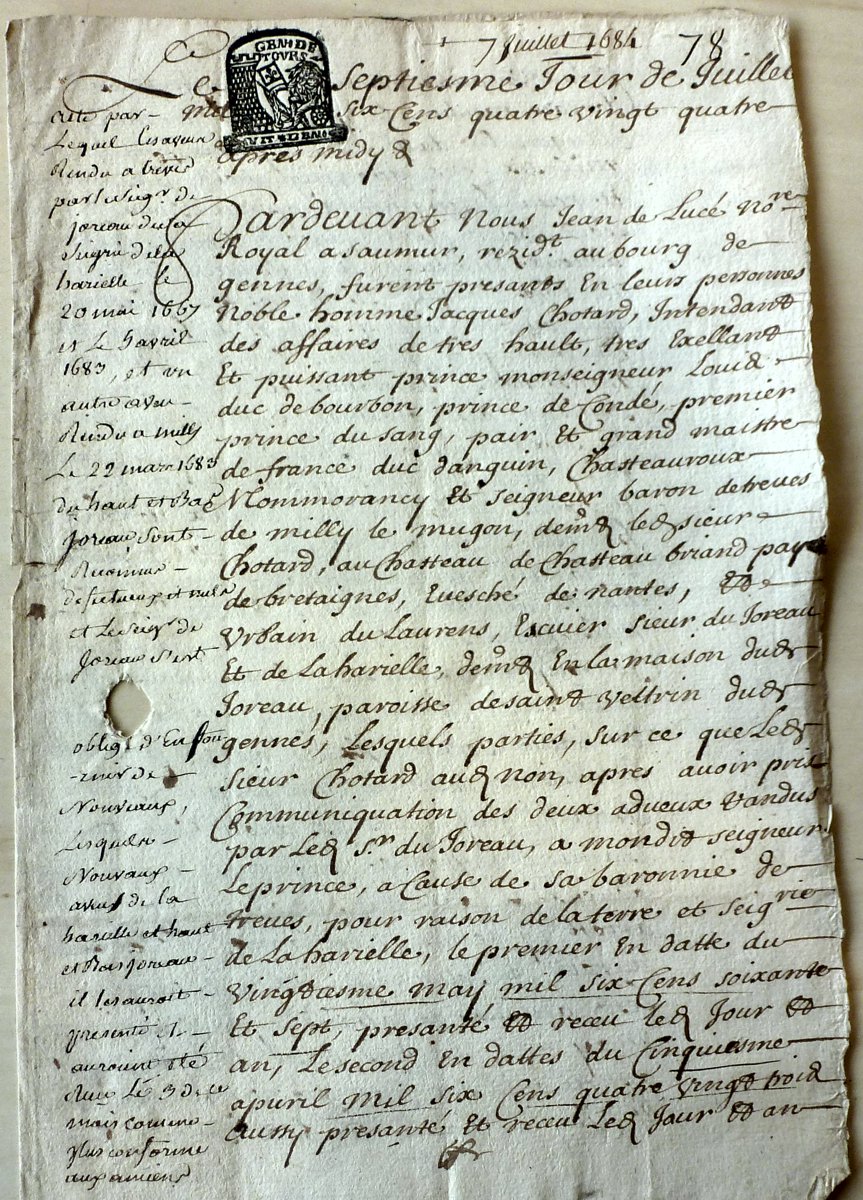 7 Juillet 1684 78
GEN DE
TOURS
Le Septiesme Jour de Juillet
mil six Cens quatre vingt quatre
apres midy &
Pardeuant Nous Jean de Lucé No.re
Royal a saumur, rezid.t au bourg de
gennes, furent presants En leurs personnes
Noble homme Jacques Chotard, Intendant
des affaires de tres hault, tres Exellant
Et puissant prince monseigneur Louis
duc de bourbon, prince de Condé, premier
prince du sang, pair Et grand maistre
de france duc danguin, Chasteauroux
Mommorancy Et seigneur baron de treues
de milly le mugon, dem.t led sieur
Chotard, au Chasteau de Chasteau briand pay
de bretaignes, Euesché de nantes, Et
Vrbain du Laurens, Escuier sieur du Joreau
Et de La harielle, dem.t En la maison dud
Joreau, paroisse de saint Veltrin dud
gennes, Lesquels parties, sur ce que Led
sieur Chotard aud non, apres auoir pris
Communiquation des deux adueux randus
par Led s.r du Joreau, a mondit seigneur
Le prince, a Cause de sa baronnie de
treues, pour raison de la terre et seig.rie
de La harielle, le premier En datte du
Vingtiesme may mil six Cens soixante
Et sept, presanté Et receu led Jour Et
an, Le second En dattes du Cinquiesme
apuril mil six Cens quatre vingt trois
aussy presanté Et receu Led Jour Et an
acte par
Lequel les aveux
Rendu a treves
par le seig.r de
joreau de la
Seigrie de la
harielle le
20 mai 1667
et Le 5 avril
1683, et un
autre aveu
Rendu a milly
Le 22 mars 1683
du haut et Bas
Joreau sont
defectueux et nuls
et Le seig.r de
Joreau s'est
obligé d'En four
-nir de
Nouveaux,
Lesquels
Nouvaux
aveus de la
harielle et haut
et Bas joreau
il les auroit
presenté et
auroient été
Reçu Le 3 de ce
mois comme
plus conforme
aux anciens